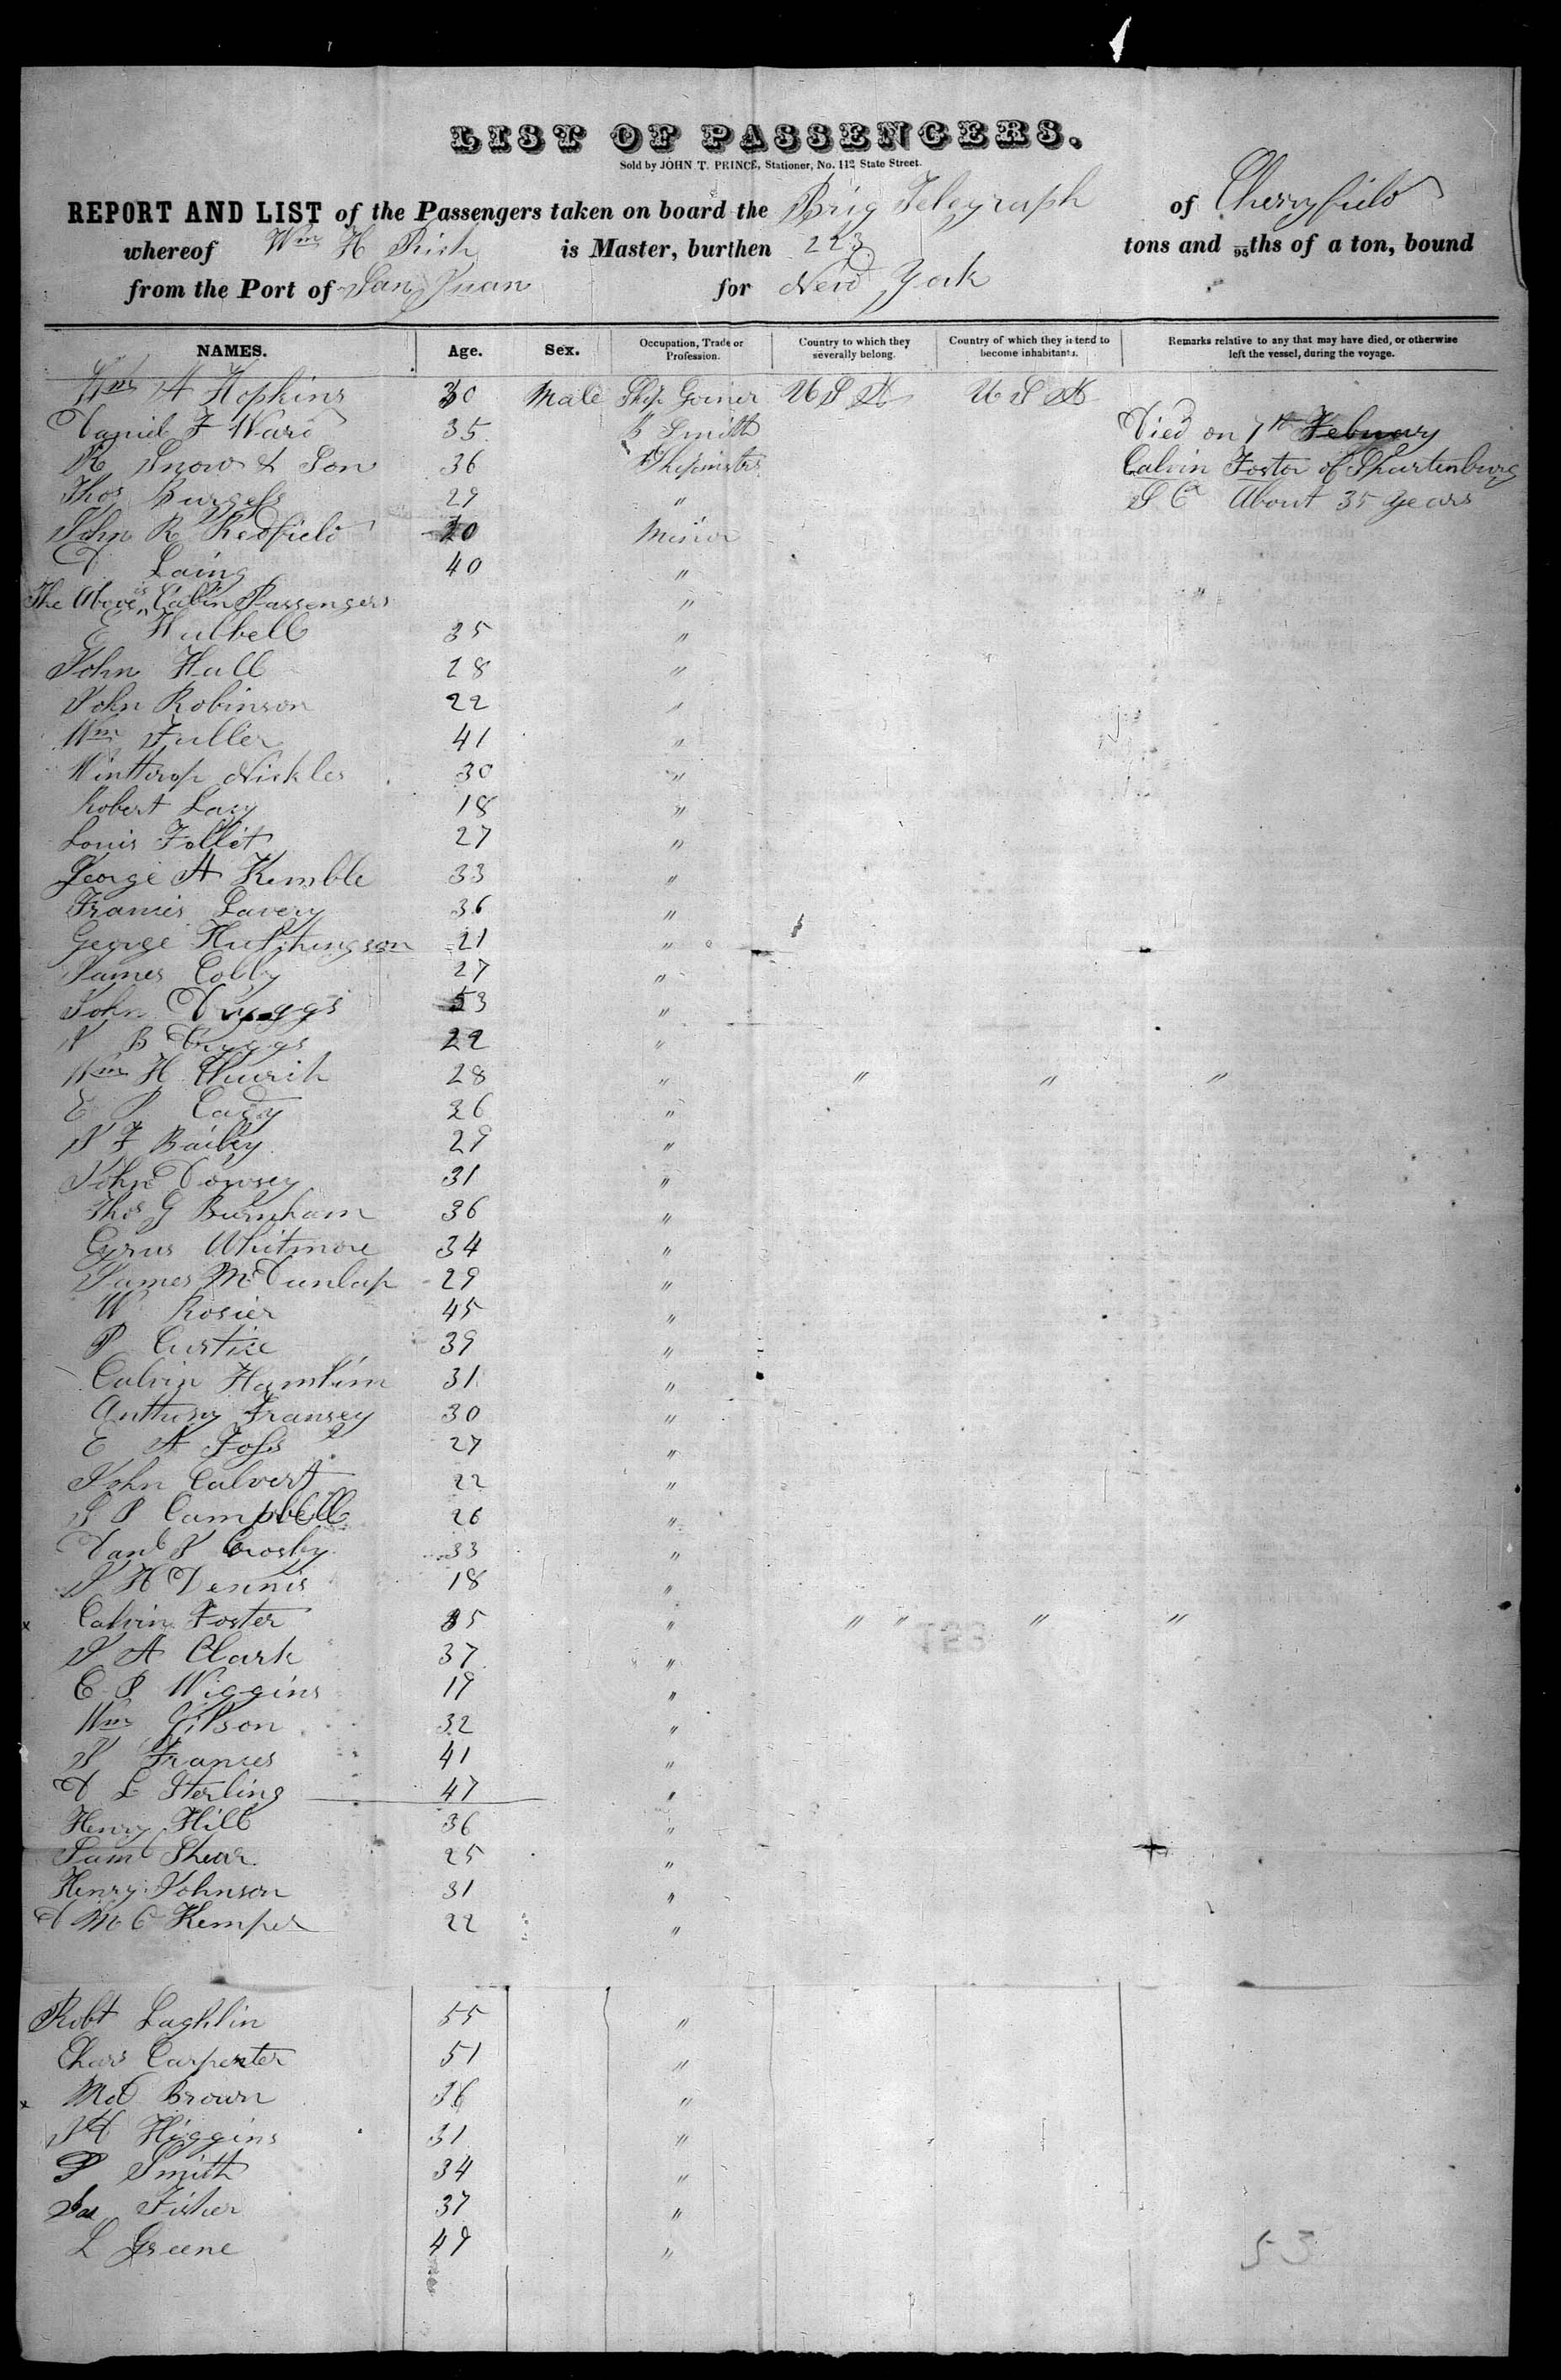 LIST OF PASSENGERS.
Sold by JOHN T. PRINCE, Stationer, No. 112 State Street.
REPORT AND LIST of the Passengers taken on board the Brig Telegraph of Cherryfield
whereof Wm H Rich is Master, burthen 223 tons and /95ths of a ton, bound
from the Port of San Juan for New York
NAMES. Age. Sex. Occupation, Trade or Profession. Country to which they severally belong. Country of which they intend to become inhabitants. Remarks relative to any that may have died, or otherwise left the vessel, during the voyage.
Wm A Hopkins 30 Male Ship Joiner U S A U S A
Daniel F Ward 35 B Smith Died on 7th Febuary
R Snow & Son 36 Calvin Foster of Sphartenburg
Thos Burgess 29 " S C About 35 years
John R Redfield 20 Minor
D Laing 40 "
The Above is Cabin Passengers "
E Hubbell 35 "
John Hall 28 "
John Robinson 22 "
Wm Fuller 41 "
Winthrop Nickles 30 "
Robert Lacy 18 "
Louis Follet 27 "
George A Kemble 33 "
Francis Lavery 36 "
George Hutchingson 21 "
James Colby 27 "
John Dryggs 53 "
J B Dryggs 22 "
Wm H Church 28 " " " "
E P Cady 26 "
J F Bailey 29 "
John Dowsey 31 "
Thos G Burnham 36 "
Cyrus Whitmore 34 "
James McDunlap 29 "
W Rosier 45 "
P Custice 39 "
Calvin Hamlim 31 "
Anthony Fransey 30 "
E A Foss 27 "
John Calvert 22 "
S P Campbell 26 "
Danl S Crosby 33 "
J H Dennis 18 "
x Calvin Foster 35 " " " " "
J A Clark 37 "
C P Wiggins 19 "
Wm Gilson 32 "
J Frances 41 "
D L Sterling 47 "
Henry Hill 36 "
Saml Shear 25 "
Henry Johnson 31 "
D McC Kemper 22 "
Robt Laghlin 55 "
Chars Carpenter 51 "
x Brown 36 "
Higgins 31 "
P Smith 34 "
Jas Fisher 37 "
L Greene 49 "
53